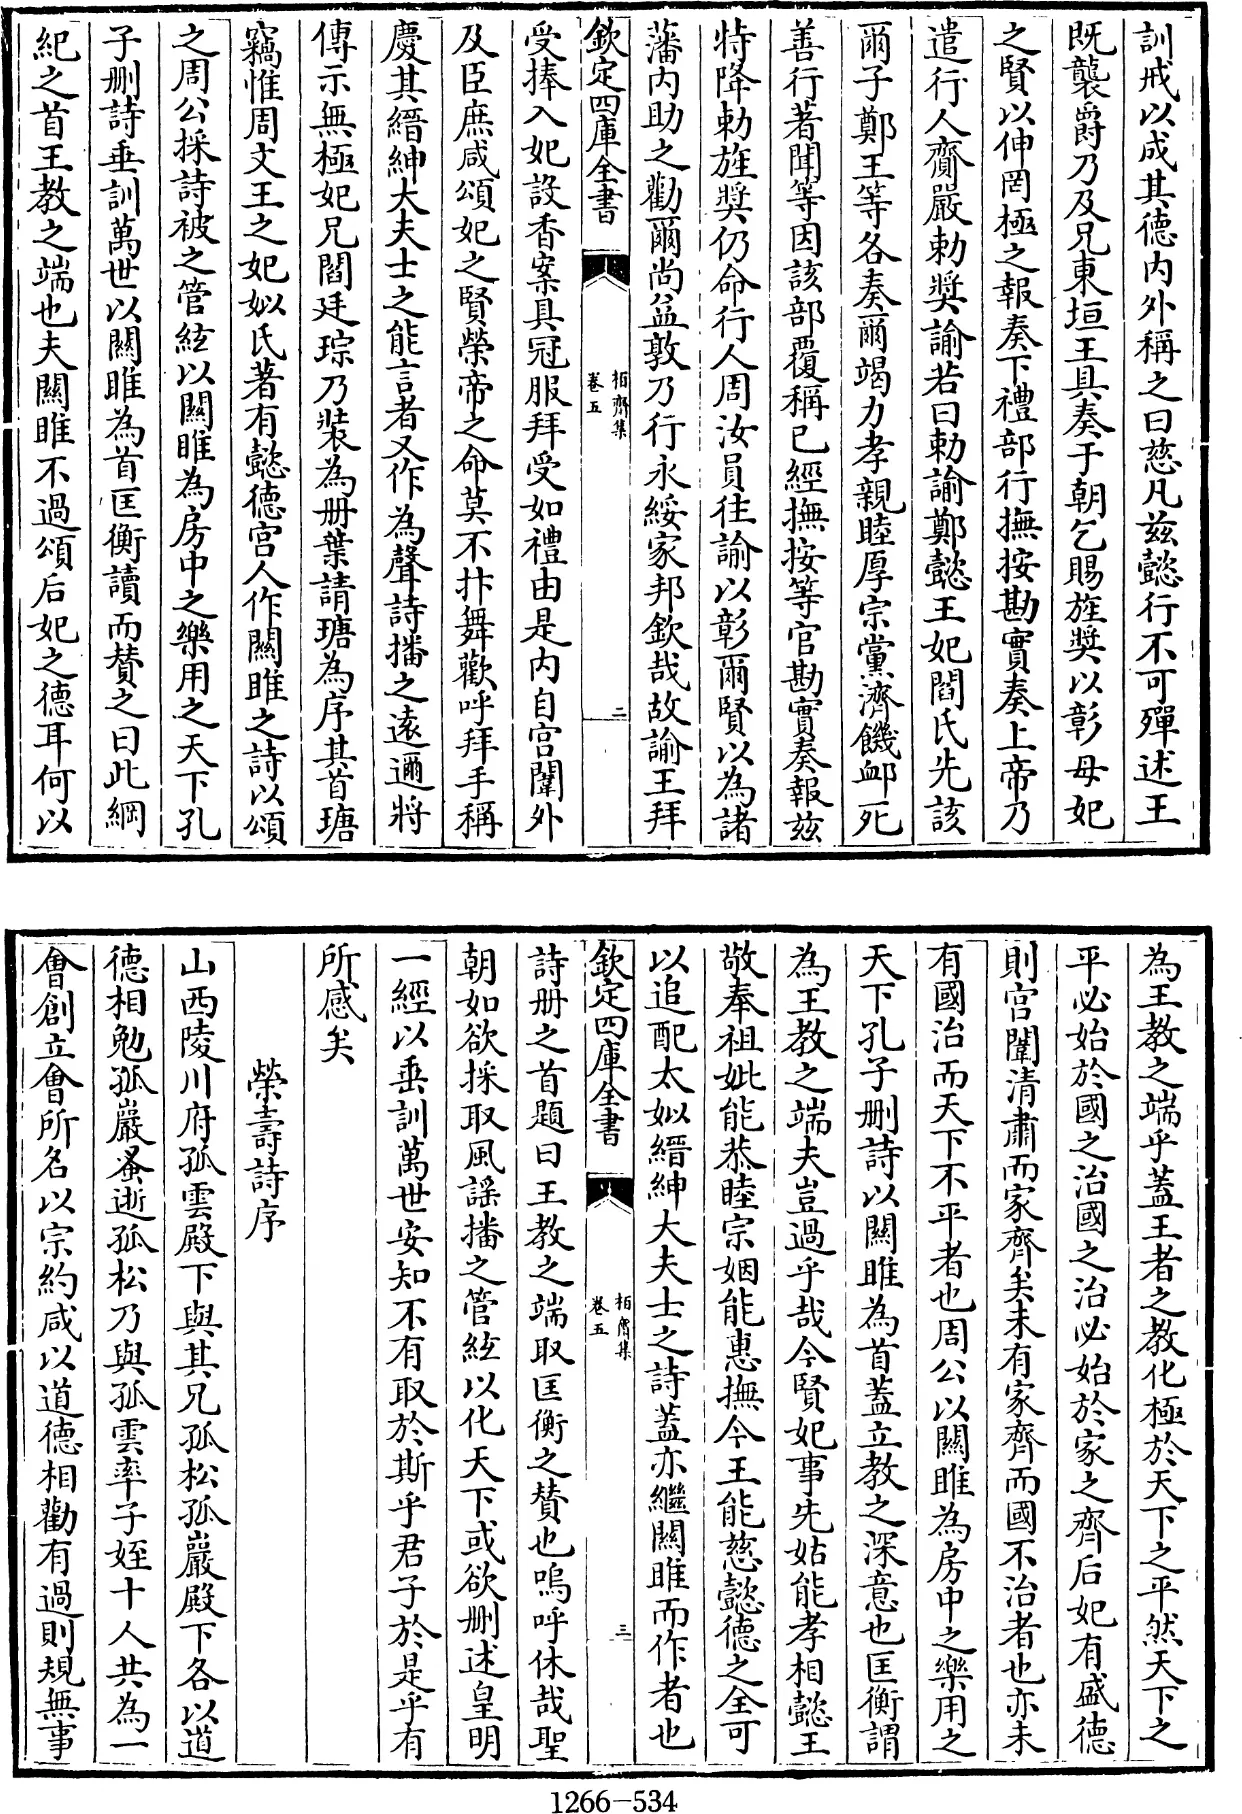 訓戒以成其德内外稱之曰慈凡兹懿行不可殫述王
既襲爵乃及兄東垣王具奏于朝乞賜旌奬以彰母妃
之賢以伸罔極之報奏下禮部行撫按勘實奏上帝乃
遣行人齎嚴勅奬諭若曰勅諭鄭懿王妃閻氏先該
爾子鄭王等各奏爾竭力孝親睦厚宗黨濟饑卹死
善行著聞等因該部覆稱已經撫按等官勘實奏報兹
特降勅旌奬仍命行人周汝員往諭以彰爾賢以為諸
藩内助之勸爾尚益敦乃行永綏家邦欽哉故諭王拜
欽定四庫全書
栢齋集
卷五
二
受捧入妃設香案具冠服拜受如禮由是内自宫闈外
及臣庶咸頌妃之賢榮帝之命莫不抃舞歡呼拜手稱
慶其縉紳大夫士之能言者又作為聲詩播之遠邇將
傳示無極妃兄閻廷琮乃裝為册葉請瑭為序其首瑭
竊惟周文王之妃姒氏著有懿德宫人作關雎之詩以頌
之周公採詩被之管絃以關雎為房中之樂用之天下孔
子刪詩垂訓萬世以關雎為首匡衡讀而賛之曰此綱
紀之首王教之端也夫關雎不過頌后妃之德耳何以
為王教之端乎蓋王者之教化極於天下之平然天下之
平必始於國之治國之治必始於家之齊后妃有盛德
則宫闈清肅而家齊矣未有家齊而國不治者也亦未
有國治而天下不平者也周公以關雎為房中之樂用之
天下孔子刪詩以關雎為首蓋立教之深意也匡衡謂
為王教之端夫豈過乎哉今賢妃事先姑能孝相懿王
敬奉祖妣能恭睦宗姻能惠撫今王能慈懿德之全可
以追配太姒縉紳大夫士之詩蓋亦繼關雎而作者也
欽定四庫全書
栢齋集
卷五
三
詩册之首題曰王教之端取匡衡之賛也嗚呼休哉聖
朝如欲採取風謠播之管絃以化天下或欲刪述皇明
一經以垂訓萬世安知不有取於斯乎君子於是乎有
所感矣
榮壽詩序
山西陵川府孤雲殿下與其兄孤松孤巖殿下各以道
德相勉孤巖蚤逝孤松乃與孤雲率子姪十人共為一
會創立會所名以宗約咸以道德相勸有過則規無事
1266-534